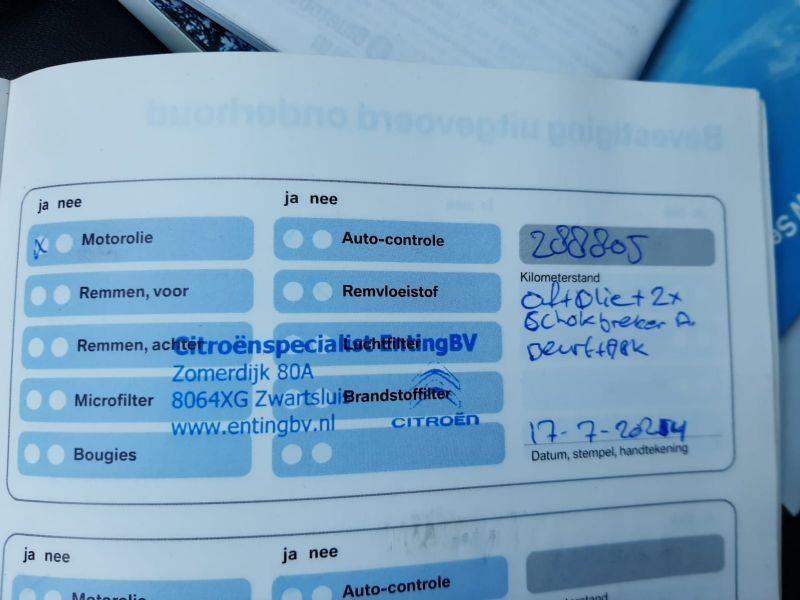 Bevestiging uitgevoerd onderhoud
ja nee
ja nee
Motorolie
Auto-controle
288805
Kilometerstand
Remmen, voor
Remvloeistof
Remmen, achter
Luchtfilter
Citroënspecialist Enting BV
Zomerdijk 80A
8064XG Zwartsluis
www.entingbv.nl
CITROËN
Microfilter
Brandstoffilter
Bougies
olie + 2x
Schokbreker A
17-7-2024
Datum, stempel, handtekening
ja nee
ja nee
Motorolie
Auto-controle